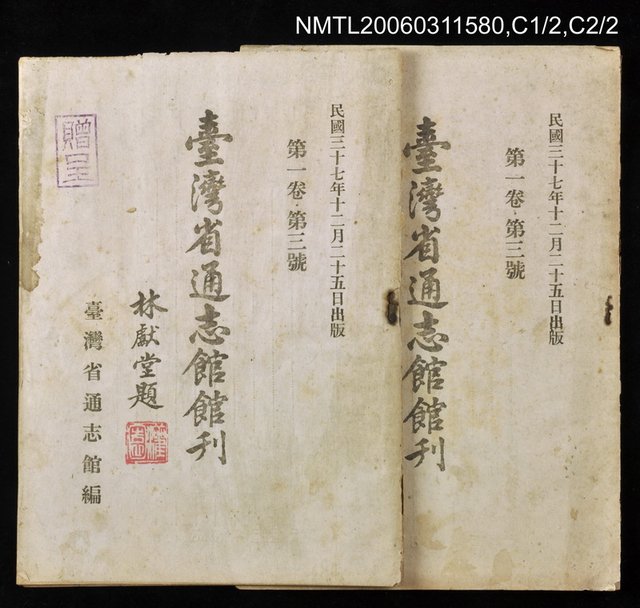 NMTL20060311580,C1/2,C2/2
民國三十七年十二月二十五日出版
第一卷·第三號
臺灣省通志館館刊
林獻堂題
臺灣省通志館編
贈呈
民國三十七年十二月二十五日出版
第一卷·第三號
臺灣省通志館館刊